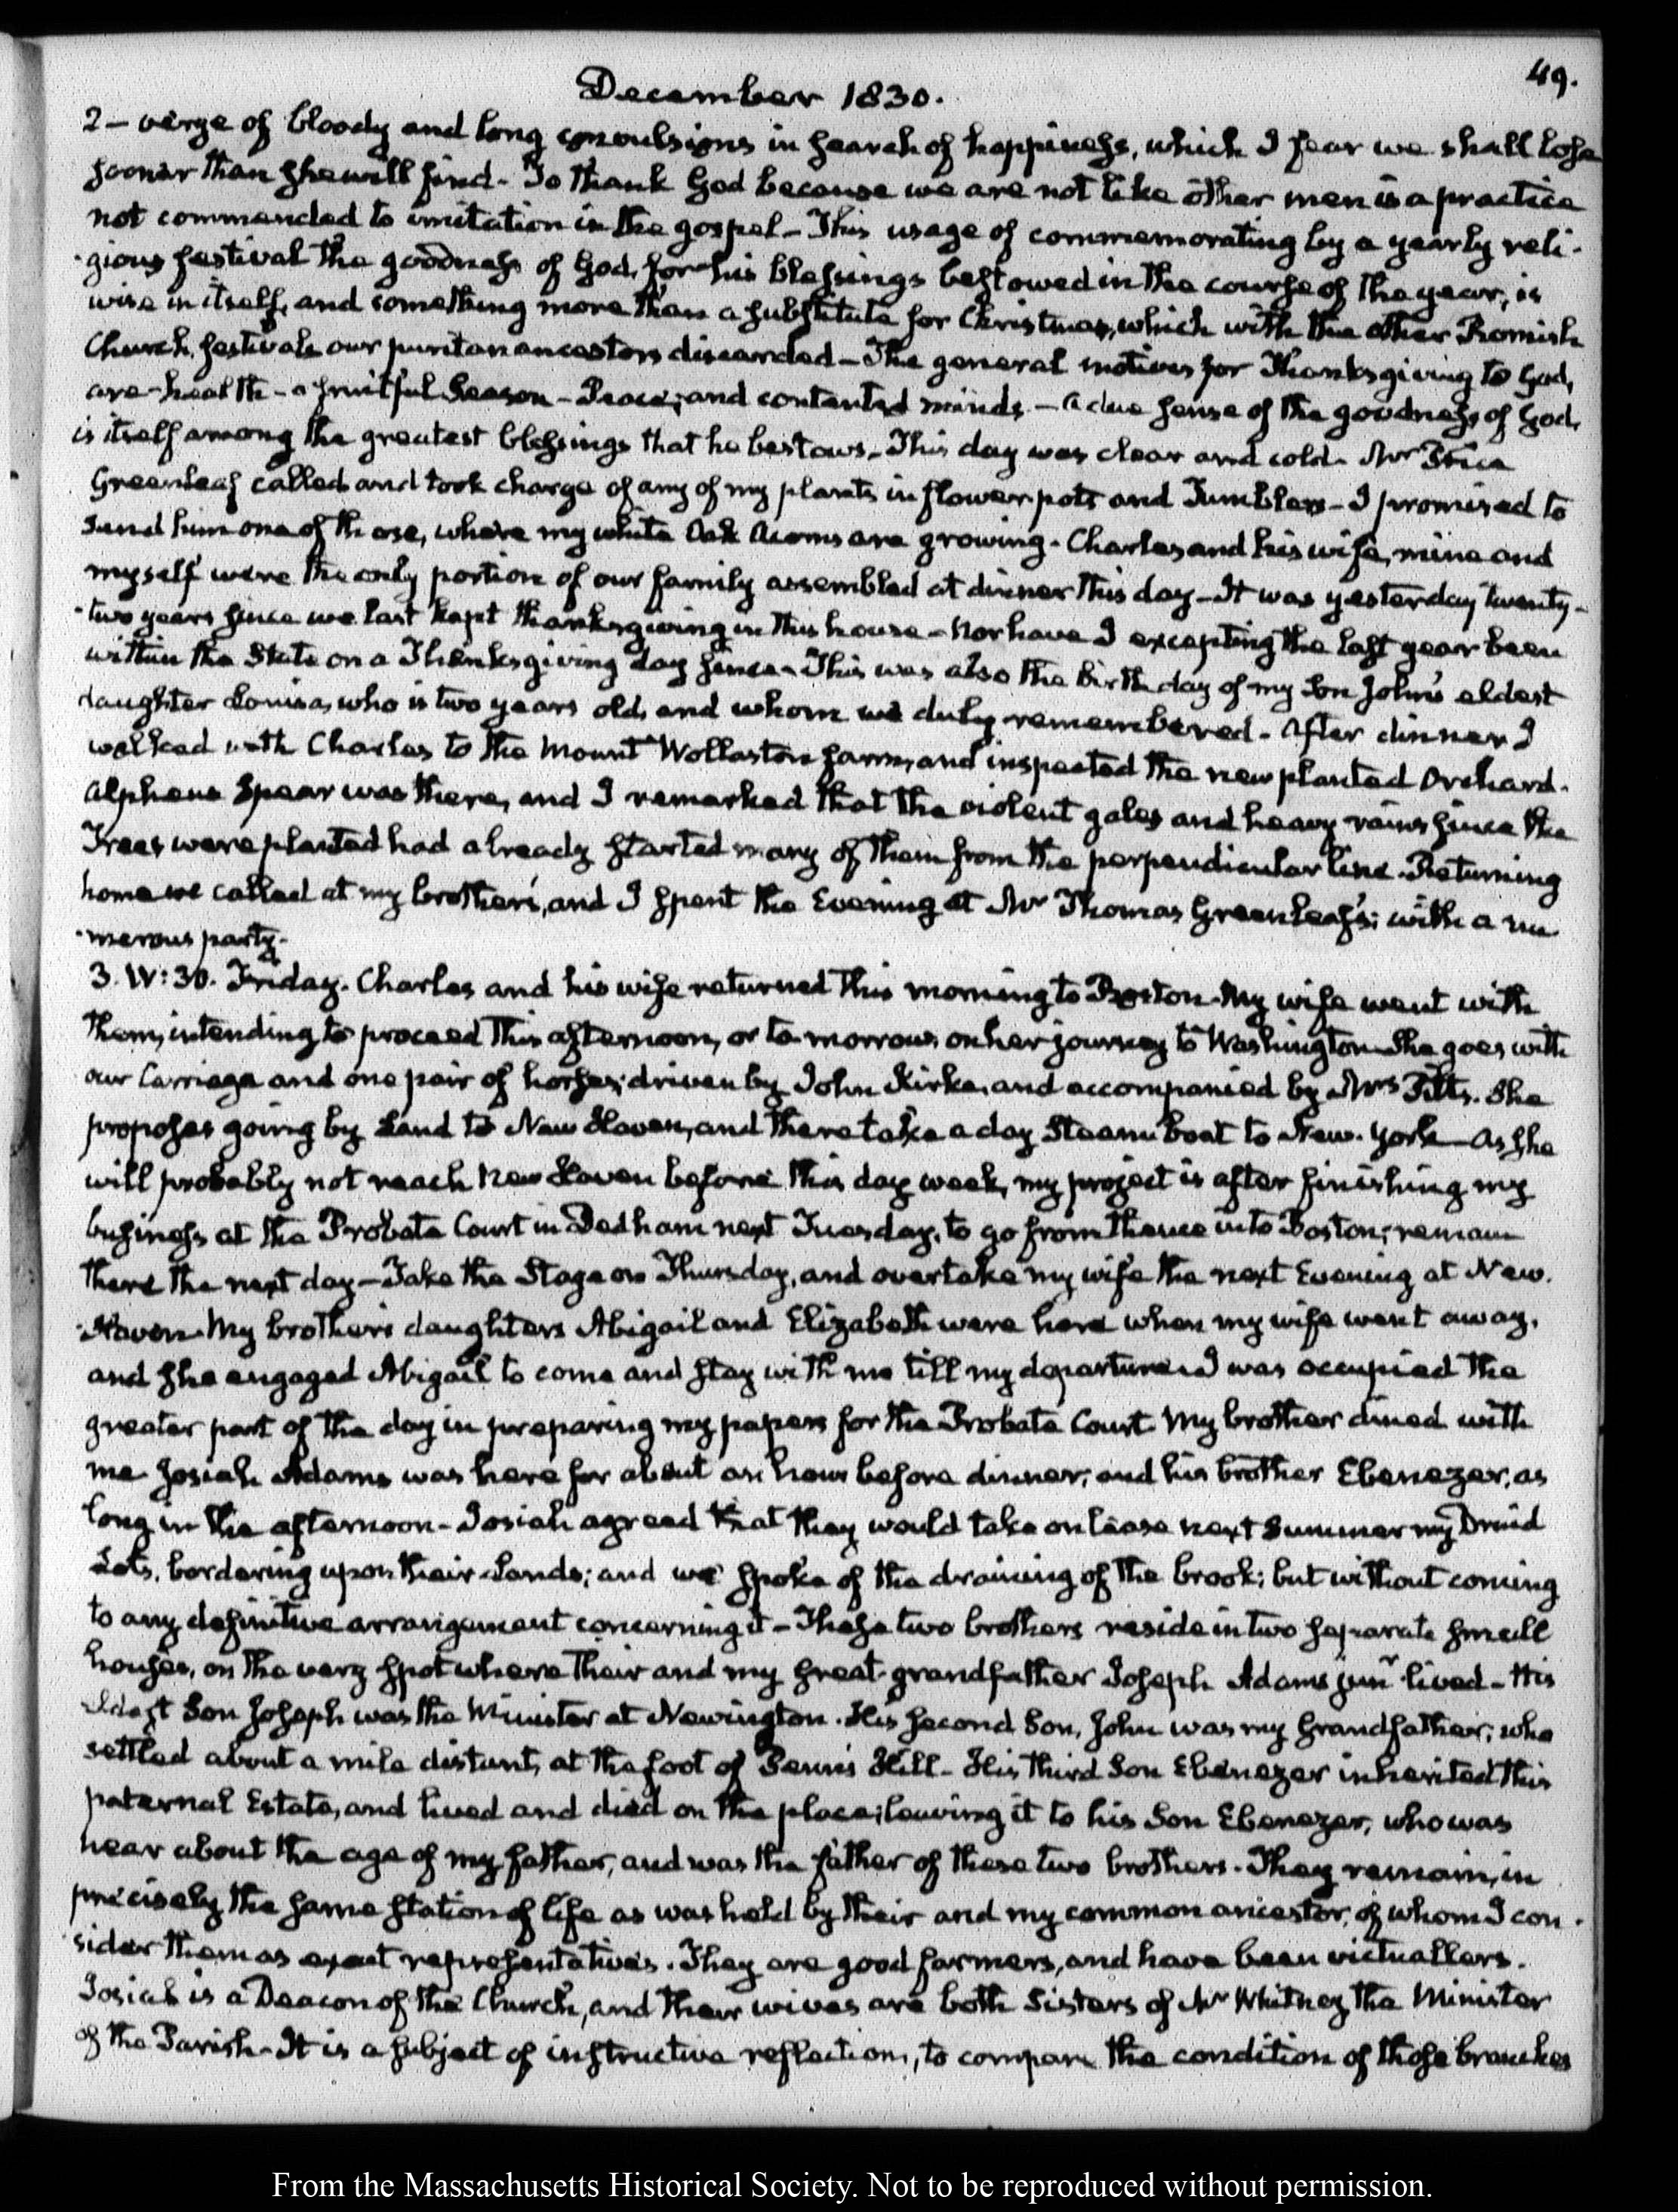 49.
December 1830.
2 — verge of bloody and long convulsions in search of happiness, which I fear we shall lose
sooner than she will find - To thank God because we are not like other men is a practice
not commended to imitation in the gospel - This usage of commemorating by a yearly reli-
-gious festival the goodness of God, for his blessings bestowed in the course of the year, is
wise in itself, and something more than a substitute for Christmas, which with the other Romish
Church, festivals our puritan ancestors discarded - The general motives for Thanksgiving to God,
are - health - a fruitful Season - Peace; and contented minds - a due sense of the goodness of God,
is itself among the greatest blessings that he bestows - This day was clear and cold. Mr Price
Greenleaf called and took charge of any of my plants in flower pots and Tumblers - I promised to
send him one of those, where my white Oak Acorns are growing - Charles and his wife, mine and
myself were the only portion of our family assembled at dinner this day - It was yesterday twenty-
-two years since we last kept thanksgiving in this house - Nor have I excepting the last year been
within the State on a Thanksgiving day since - This was also the birth day of my Son John's eldest
daughter Louisa, who is two years old, and whom we duly remembered - After dinner I
walked with Charles to the Mount Wollaston farm, and inspected the new planted Orchard.
Alpheus Spear was there, and I remarked that the violent gales and heavy rains since the
Trees were planted had already started many of them from the perpendicular line. Returning
home we called at my brother's, and I spent the Evening at Mr Thomas Greenleaf's; with a nu-
-merous party.
3. IV: 30. Friday. Charles and his wife returned this morning to Boston. My wife went with
them, intending to proceed this afternoon, or to-morrow, on her journey to Washington. She goes with
our Carriage and one pair of horses, driven by John Kirke, and accompanied by Mrs Fitts. She
proposes going by Land to New Haven, and there take a day Steam boat to New-York - As she
will probably not reach New Haven before this day week, my project is after finishing my
business at the Probate Court in Dedham next Tuesday, to go from thence into Boston; remain
there the next day - Take the Stage on Thursday, and overtake my wife the next Evening at New-
-Haven. My brother's daughters Abigail and Elizabeth were here when my wife went away,
and she engaged Abigail to come and stay with me till my departure. I was occupied the
greater part of the day in preparing my papers for the Probate Court. My brother dined with
me. Josiah Adams was here for about an hour before dinner; and his brother Ebenezer, as
long in the afternoon - Josiah agreed that they would take on lease next Summer my Druid
Lots, bordering upon their Lands; and we spoke of the draining of the brook; but without coming
to any definitive arrangement concerning it - These two brothers reside in two separate small
houses, on the very spot where their and my great-grandfather Joseph Adams junr lived - His
eldest Son Joseph was the Minister at Newington. His second Son, John was my Grandfather; who
settled about a mile distant, at the foot of Penn's Hill - His third Son Ebenezer inherited this
paternal Estate, and lived and died on the place; leaving it to his Son Ebenezer, who was
near about the age of my father, and was the father of these two brothers. They remain, in
precisely the same station of life as was held by their and my common ancestor, of whom I con-
-sider them as exact representatives. They are good farmers, and have been victuallers.
Josiah is a Deacon of the Church, and their wives are both Sisters of Mr Whitney the Minister
of the Parish - It is a subject of instructive reflection, to compare the condition of those branches
From the Massachusetts Historical Society. Not to be reproduced without permission.